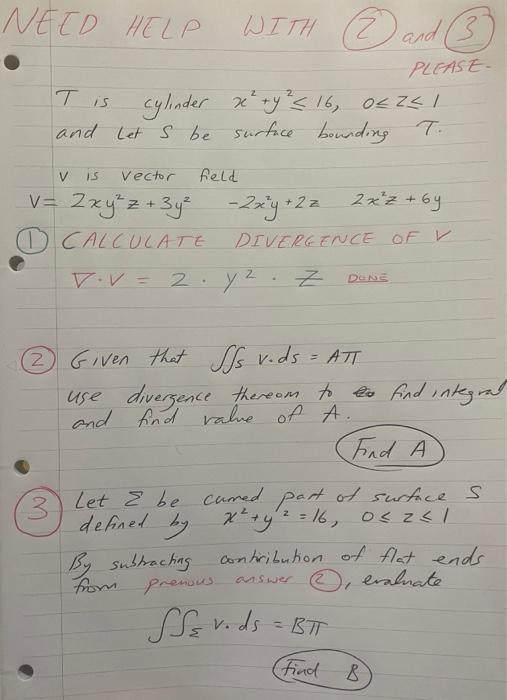 NEED HELP WITH ② and ③
PLEASE-
T is cylinder x² + y² ≤ 16, 0 ≤ z ≤ 1
and let S be surface bounding T.
v is vector field
V = 2xy²z + 3y² -2x²y + 2z 2x²z + 6y
① CALCULATE DIVERGENCE OF V
∇·V = 2 · y² · z DONE
② Given that ∬s v.ds = Aπ
use divergence thereom to find integral
and find value of A.
Find A
③ Let Σ be curved part of surface S
defined by x² + y² = 16, 0 ≤ z ≤ 1
By subtracting contribution of flat ends
from previous answer ②, evaluate
∬Σ v.ds = Bπ
Find B